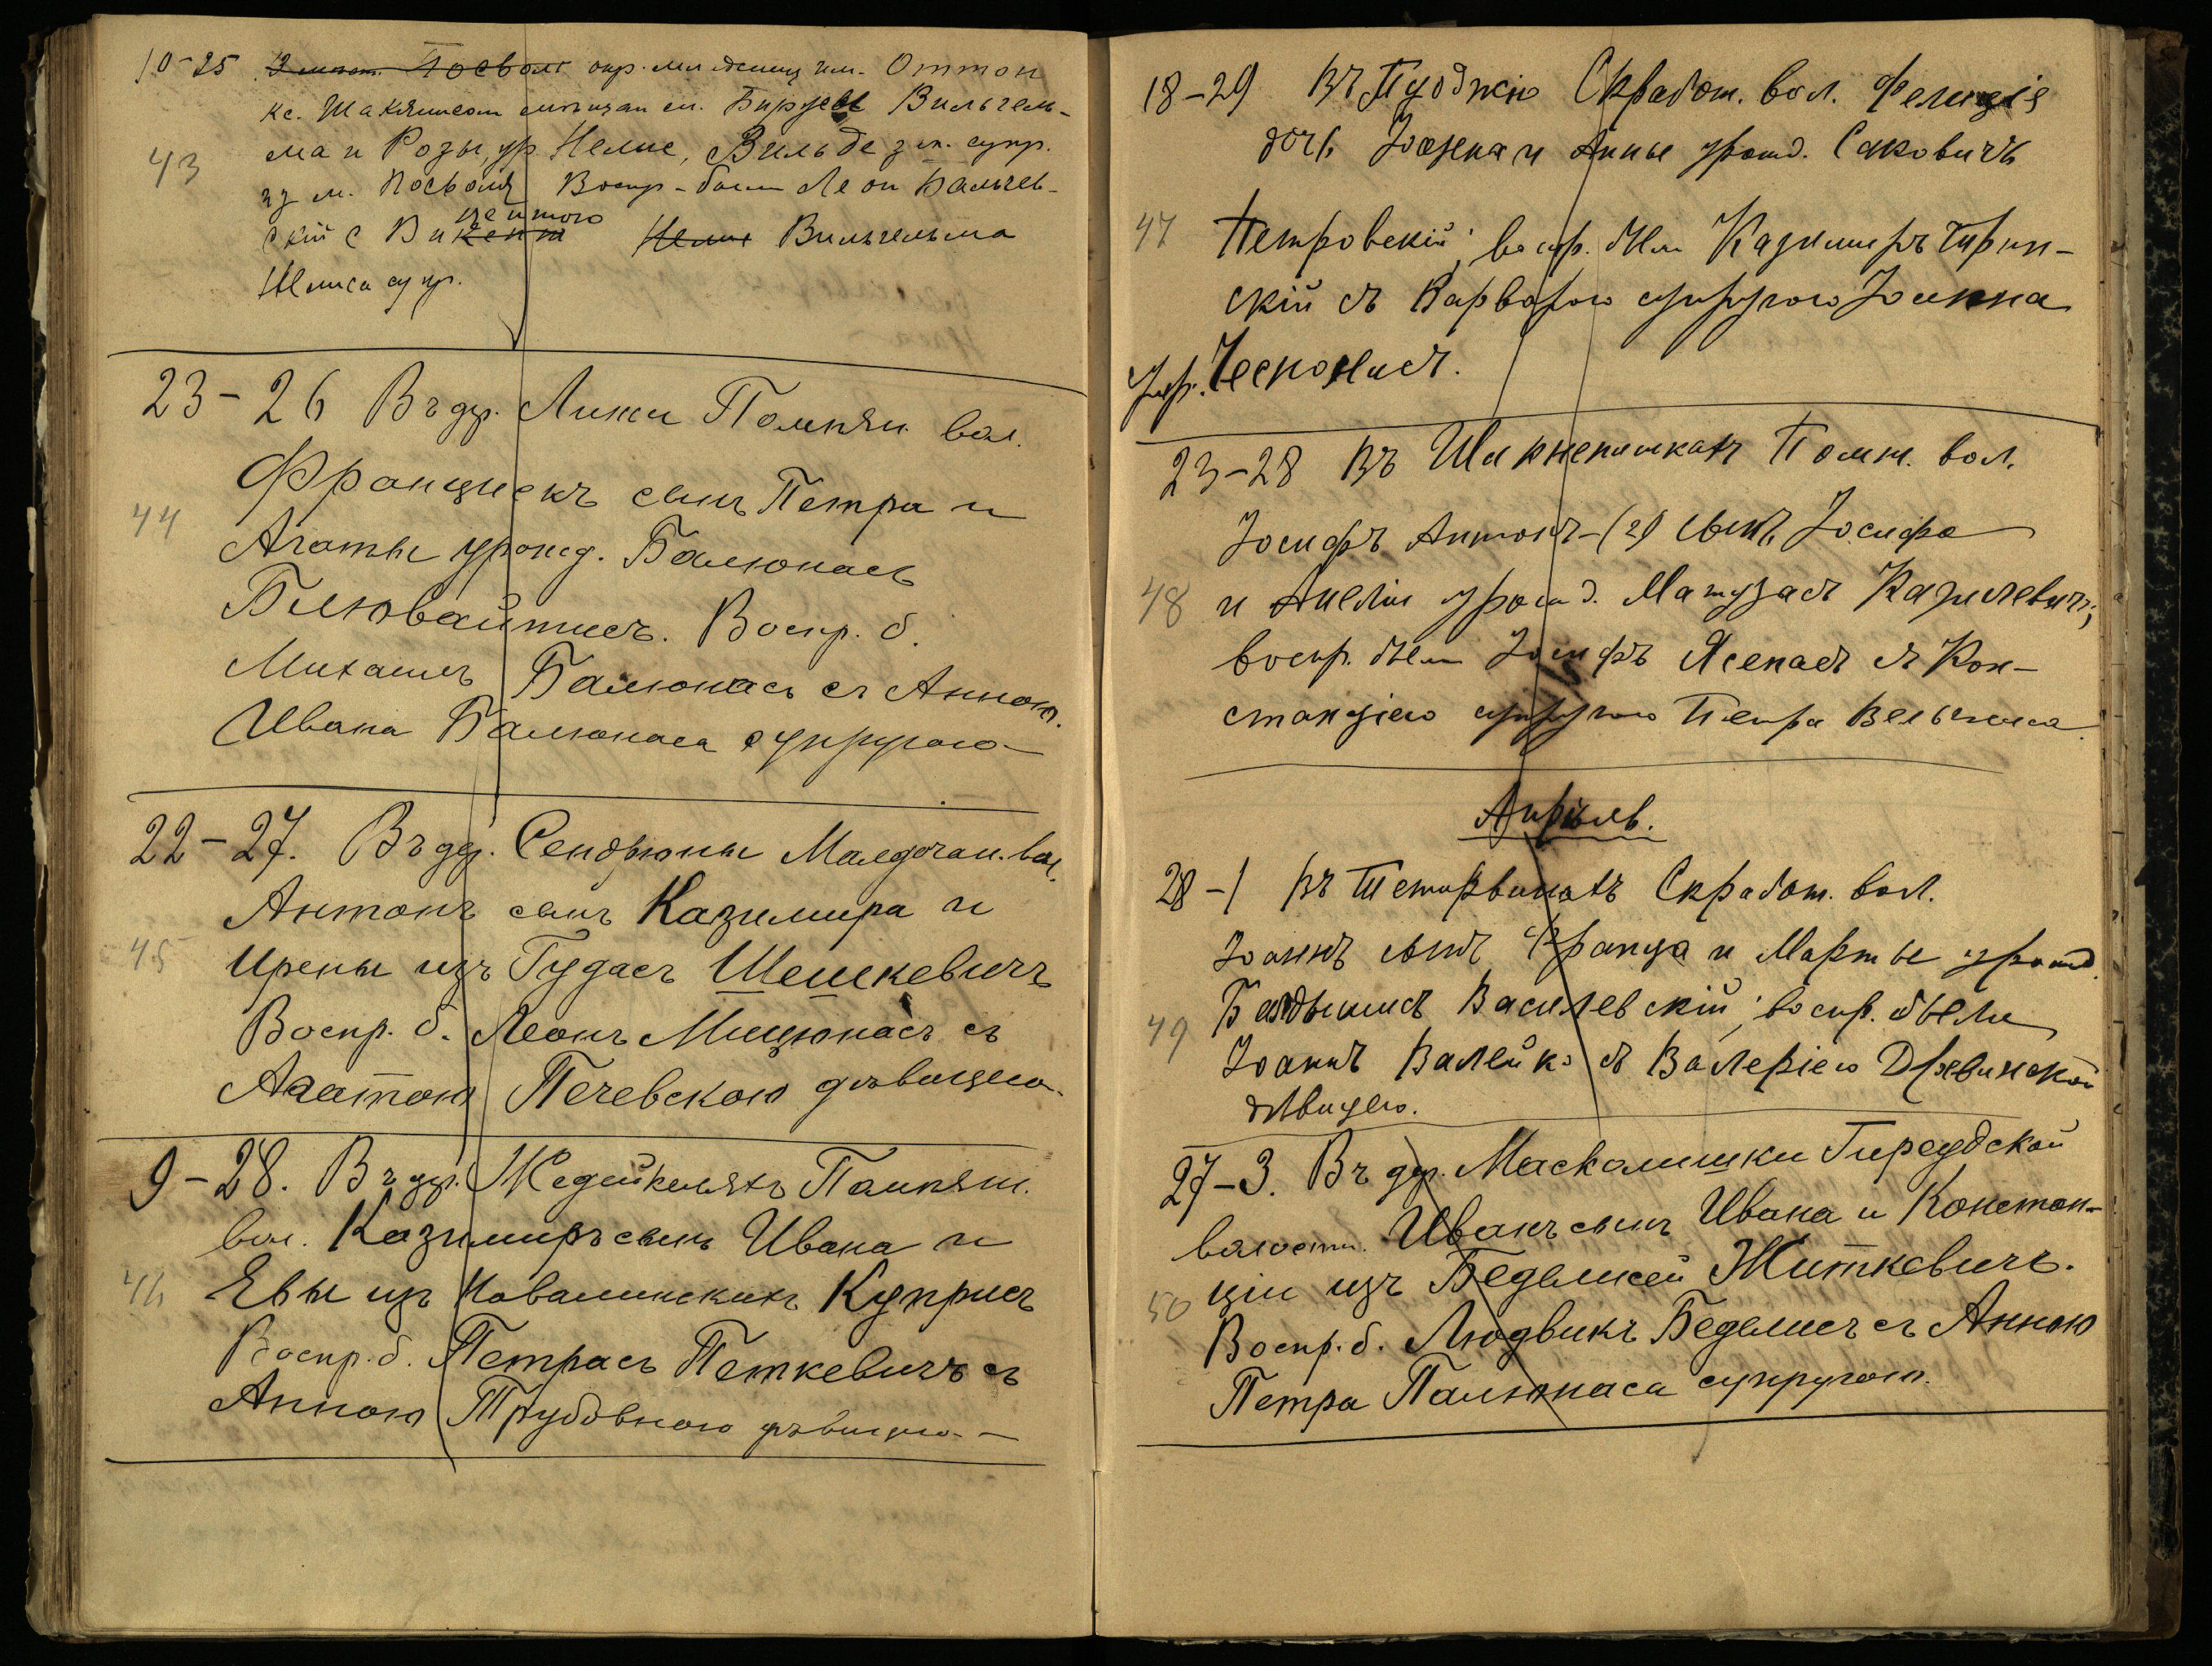 10-25 З мест. Посволь окр. младенец им. Оттон
кс. Шаклинсом мещан м. Биржев Вильгель-
43
ма и Розы, ур Нелис, Вильде зак. супр.
из м. Посволя Воспр-были Леон Бальчев-
центою
скій с Викент Нелис Вильгельма
Нелиса супр.
23-26 Въ дер. Лики Помпян. вол.
Францискъ сынъ Петра и
44
Агаты урожд. Балюнасъ
Билювайтисъ. Воспр. б.
Михаилъ Балюнасъ съ Анною.
Ивана Балюнаса супругою
22-27. Въ дер. Сендрюны вол.
Антонъ сынъ Казимира и
45
Ирены изъ Гудасъ Шешкевичъ
Воспр. б. Леонъ Мицюнасъ съ
Агатою Печевскою дѣвицею.
9-28. Въ дер. Жедейкеляхъ Помпян.
вол. Казимиръ сынъ Ивана и
46
Евы изъ Ковалинскихъ Куприсъ
Воспр. б. Петрасъ Петкевичъ съ
Анною Трубовною дѣвицею.-
18-29 Въ Пуоджю Скработ. вол. Фелиція
дочь Іозефа и Анны урожд. Саковичъ
47
Петровскій; воспр. были Казимиръ
скій съ Варварою супругою Іоанна
Чеснонисъ.
23-28 Въ Помп. вол.
Іосифъ Антонъ-(2) сынъ Іосифа
48
и Анеліи урожд. Матузасъ Казилевичъ;
воспр. были Іосифъ Ясенасъ съ Кон-
станціею супругою Петра
Апрѣль.
28-1 Въ Тетирвинахъ Скработ. вол.
Іоаннъ сынъ Франца и Марты урожд.
Василевскій; воспр. были
49
Іоаннъ Валейко съ Валеріею Древинской
дѣвицею.
27-3. Въ дер. Маскалишки Гирсудской
волости. Иванъ сынъ Ивана и Констан-
ціи изъ Бедалисей Житкевичъ.
50
Воспр. б. Людвикъ Бедалисъ съ Анною
Петра Палюнаса супругою.